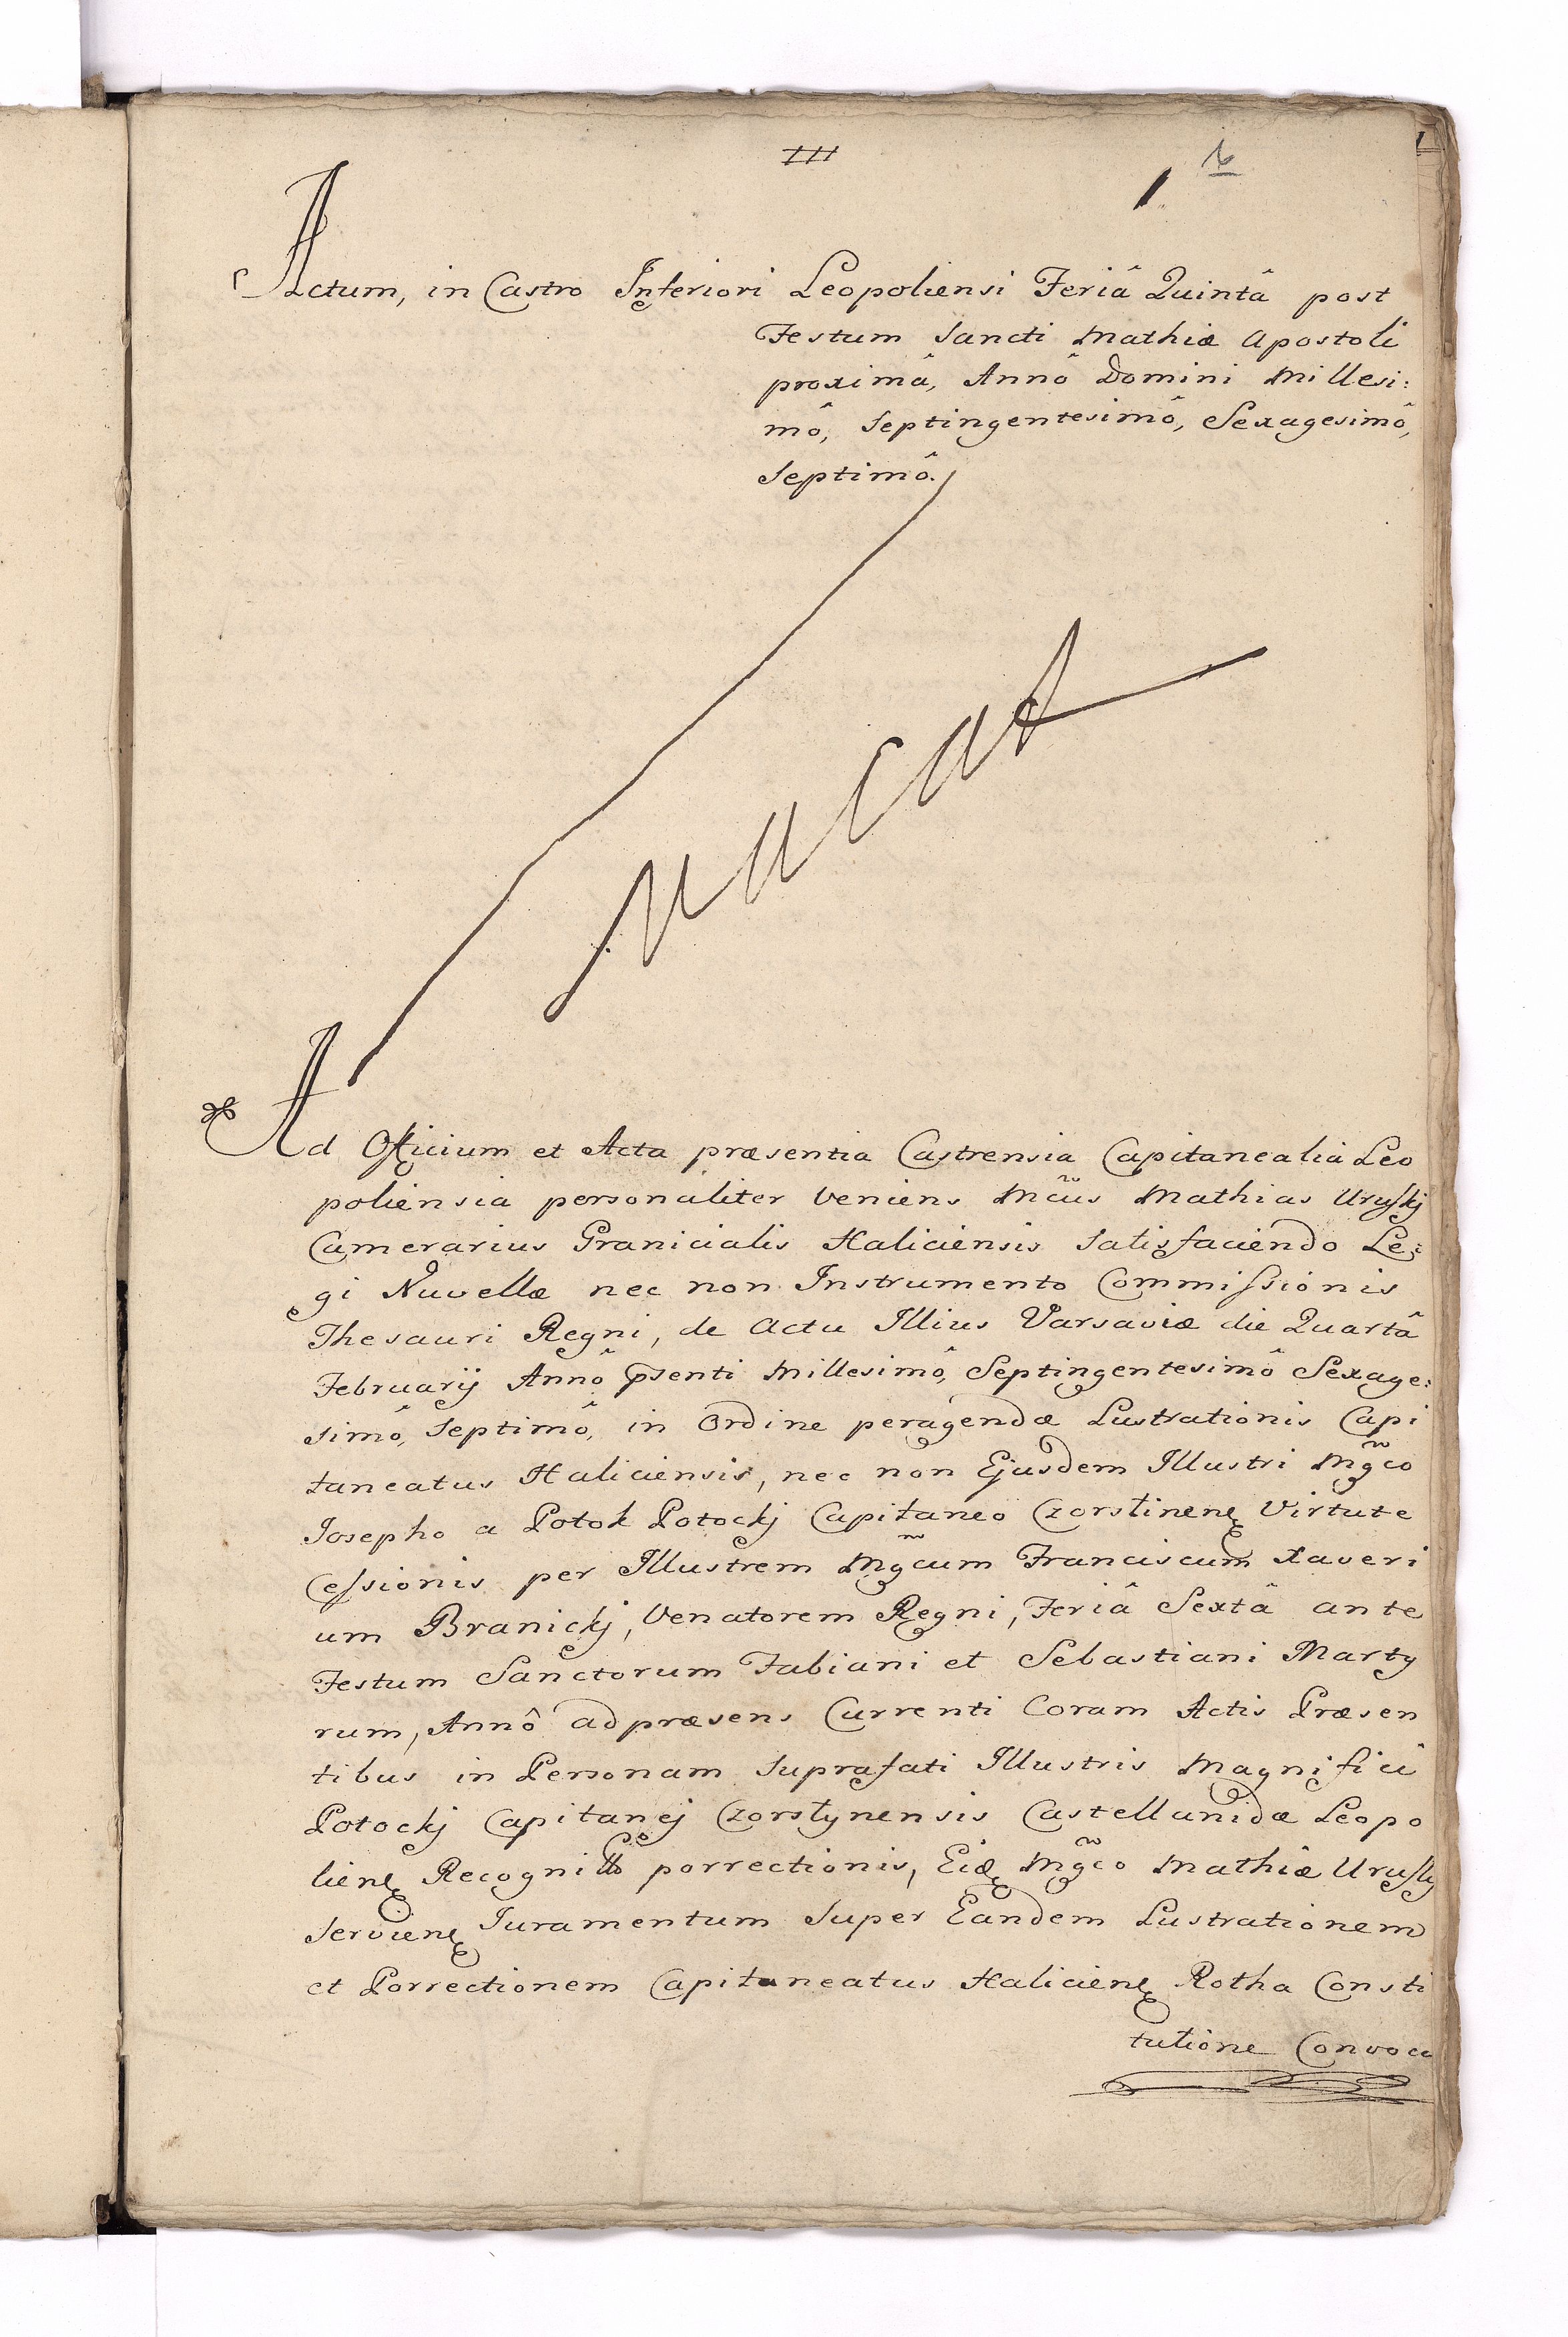 III
1
Actum, in Castro Inferiori Leopoliensi Feriâ Quintâ post
Festum Sancti Mathiæ Apostoli
proximâ, Annô Domini Millesi:
mô, Septingentesimô, Sexagesimô,
Septimô.
Vacat
Ad Officium et Acta præsentia Castrensia Capitanealia Leo
poliensia personaliter veniens Mãus Mathias Uruskj
Camerarius Granicialis Haliciensis satisfaciendo Le:
gi Nuvellæ nec non Instrumento Commissionis
Thesauri Regni, de Actu Illius Varsaviæ die Quartâ
Februarij Annô pſenti Millesimô, Septingentesimô Sexage:
simô, Septimô, in Ordine peragendæ Lustrationis Capi
taneatus Haliciensis, nec non Ejusdem Illustri Mg̃co
Josepho a Potok Potockj Capitaneo Czorstinenę Virtute
Cessionis per Illustrem Mg̃cum Franciscum Xaveri
um Branickj, Venatorem Regni, Feriâ Sextâ ante
Festum Sanctorum Fabiani et Sebastiani Marty
rum, Annô ad præsens Currenti Coram Actis Præsen
tibus in Personam suprafati Illustris Magnifici
Potockj Capitanej Czorstynensis Castellanidæ Leopo
lienę porrectionis, Mg̃co Mathiæ Uruskj
servienę Juramentum super Eandem Lustrationem
et Porrectionem Capitaneatus Halicienę Rotha Consti
tutione Convoca